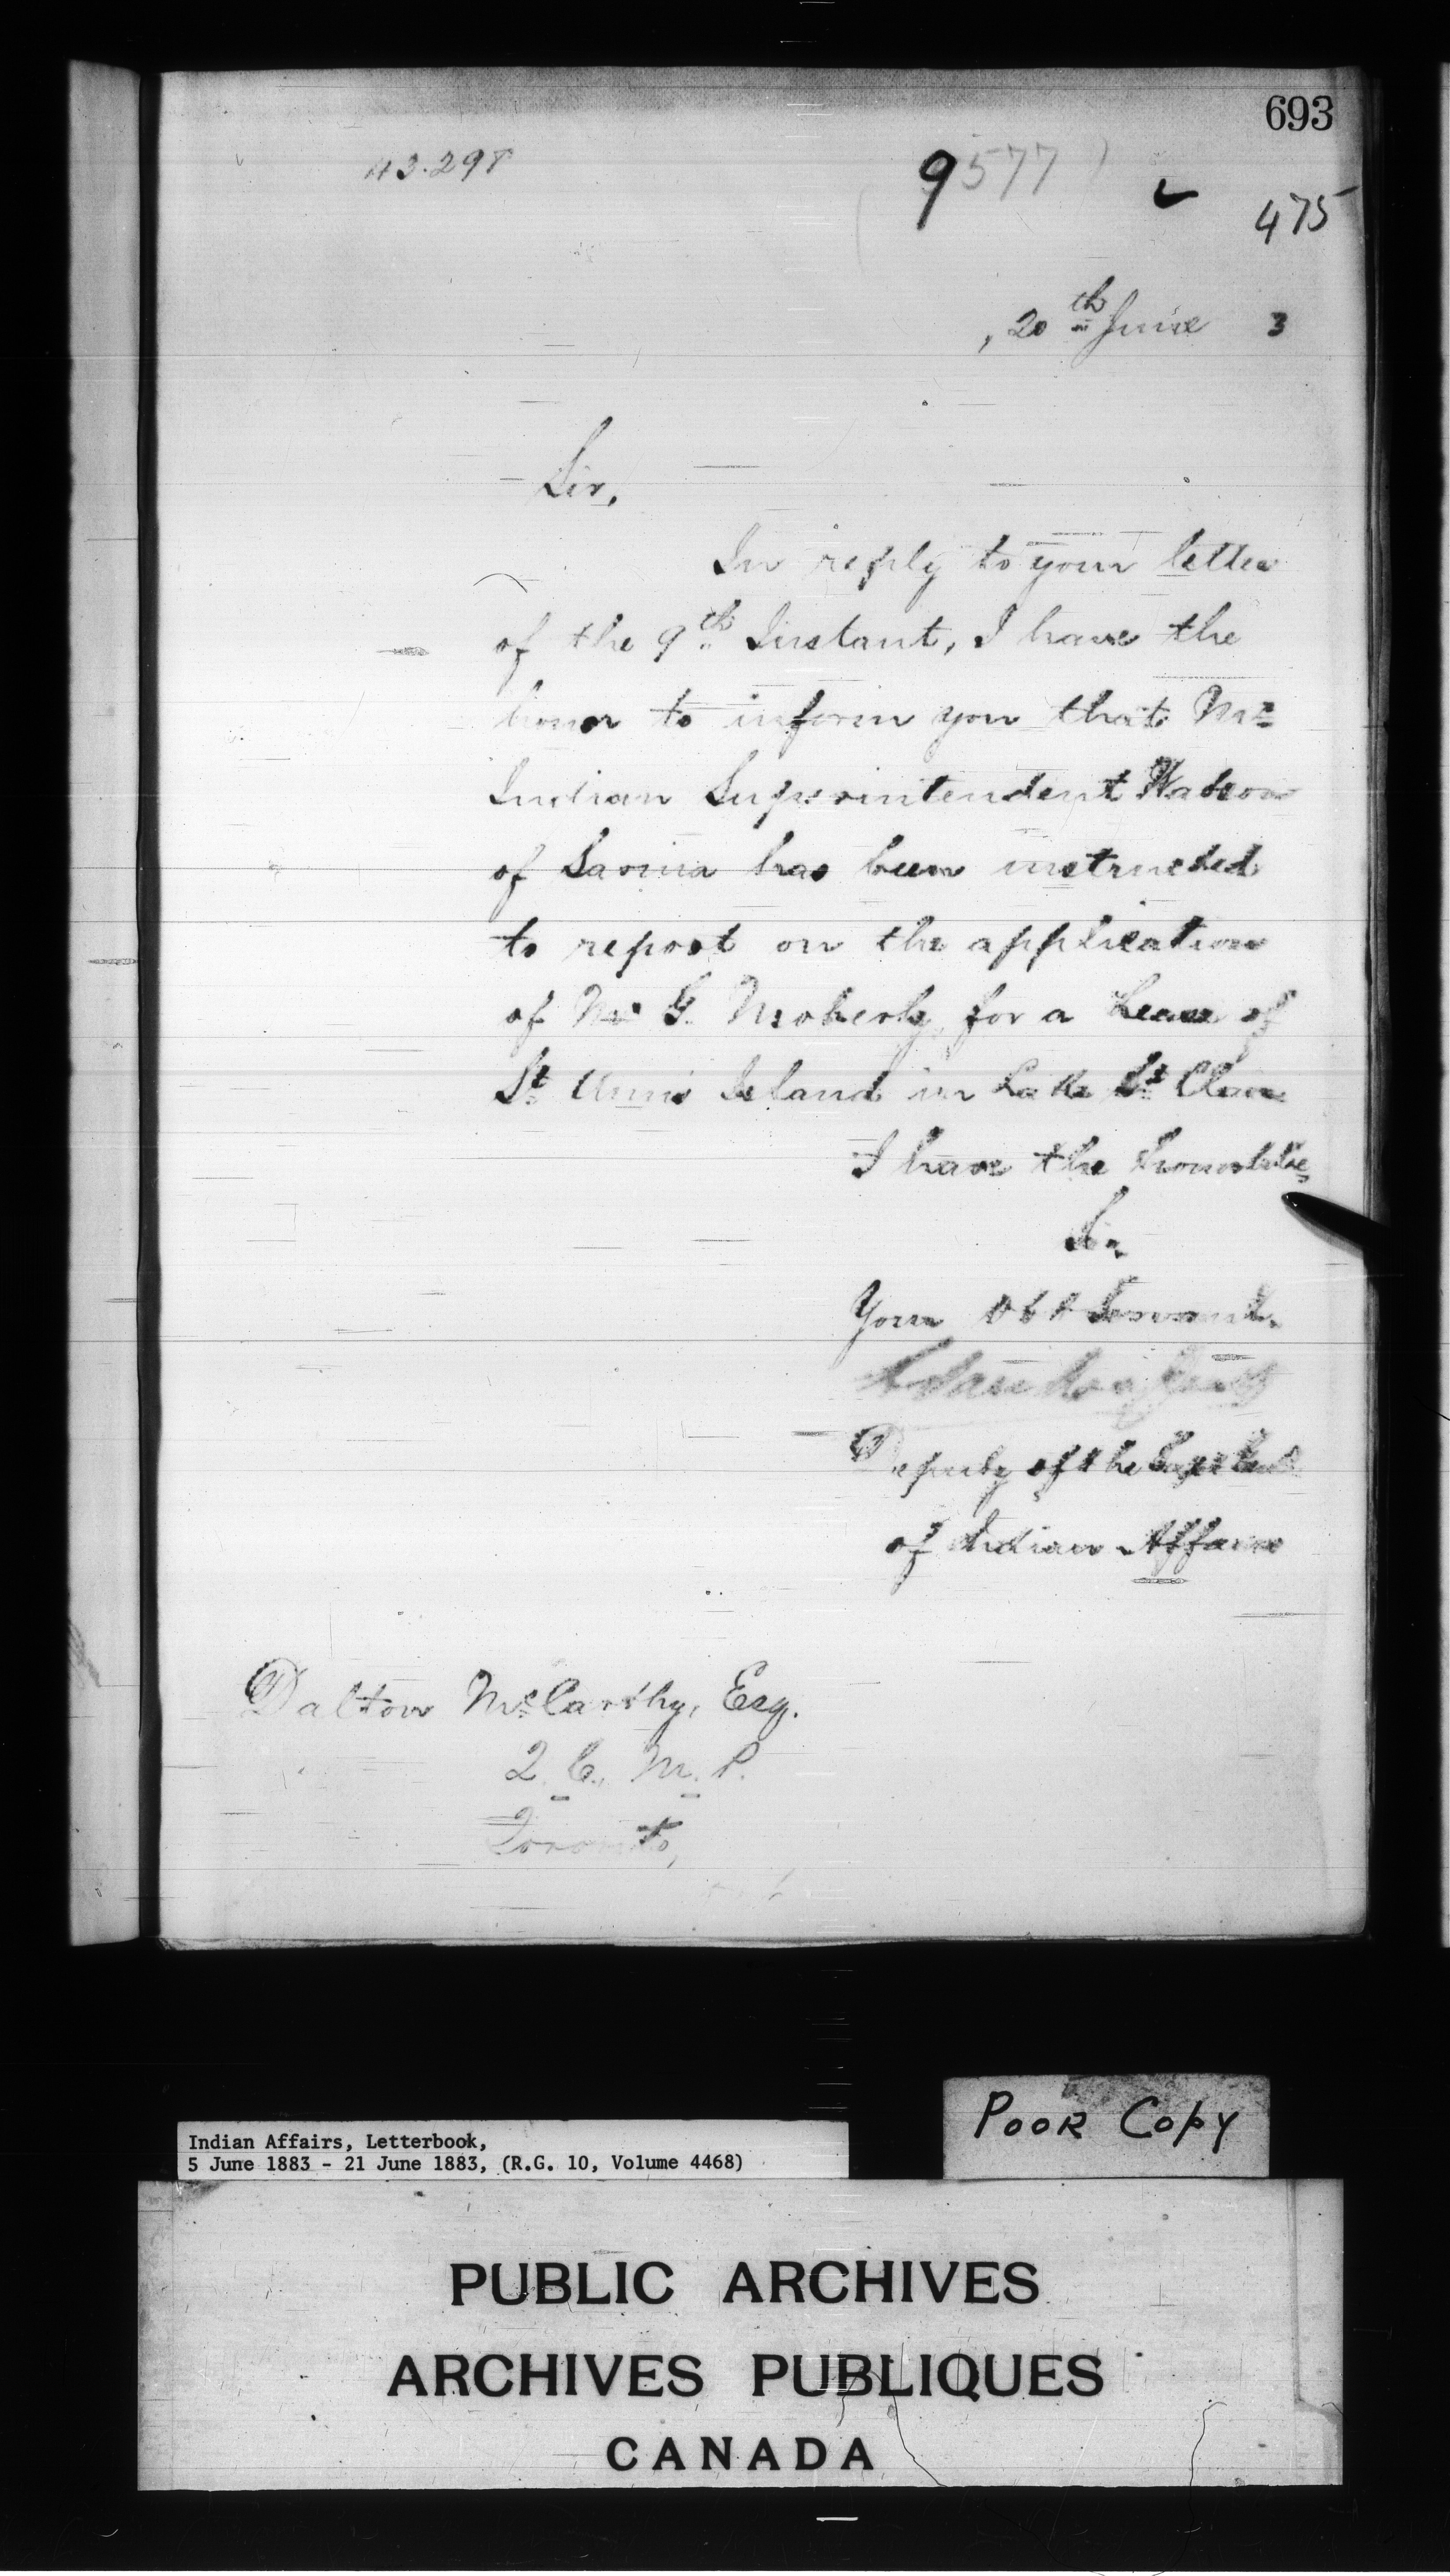 693
43.298
9577
475
, 20th June 3
Sir,
In reply to your letter
of the 9th Instant, I have the
honor to inform you that Mr
Indian Superintendent Watson
of Sarnia has been instructed
to report on the application
of Mr G. Moberly, for a Lease of
St Ann's Island in Lake St Clair
I have the honor to be,
Sir,
Your Obt Servant.
Deputy of the Supt Genl
of Indian Affairs
Dalton McCarthy, Esq.
Q.C., M.P.
Toronto,
Poor Copy
Indian Affairs, Letterbook,
5 June 1883 - 21 June 1883, (R.G. 10, Volume 4468)
PUBLIC ARCHIVES
ARCHIVES PUBLIQUES
CANADA